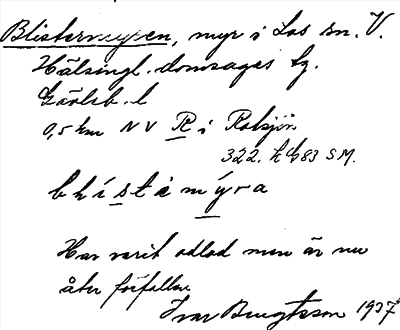 Blistermyren, myr i Los sn. V.
Hälsingl. domsagas tg.
Gävleb. l
0,5 km NV R i Rolsjön
322. h 683 S.M.
Har varit odlad men är nu
åter förfallen
Ivar Bengtsson 1937